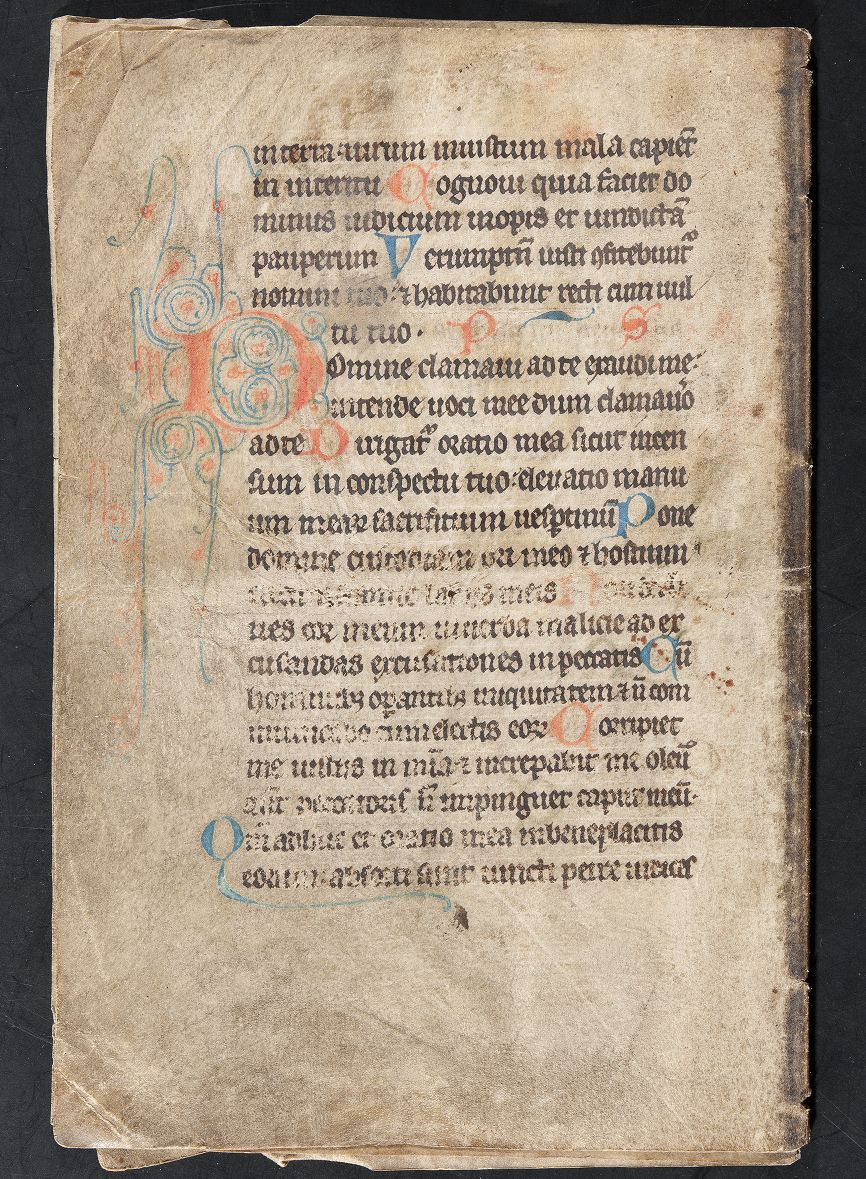 in terra uirum iniustum mala capiēt
in interitu Cognoui quia faciet do
minus iudicium inopis et uindictā
pauperum Uerumptn̄ iusti ꝯfitebunt᷑
nomini tuo ⁊ habitabunt recti cum uul
tu tuo · P S
Domine clamaui ad te exaudi me
intende uoci mee dum clamau̾o
ad te Dirigat᷑ oratio mea sicut incen
sum in conspectu tuo eleuatio manu
um mearꝝ sacrificium uesꝑtinū Pone
domine custodiam ori meo ⁊ hostium
meis Non
nes cor meum in uerba malicie ad ex
cusandas excusationes in peccatis Cū
hominibꝫ oꝑantibꝫ iniquitatem ⁊ n̄ com
cum electis eorꝝ Corripiet
me iustus in mīa ⁊ increpabit me oleū
aūt n̄ impinguet caput meū
Qm̄ adhuc et oratio mea in beneplacitis
eorum absorti sunt iuncti petre iudices